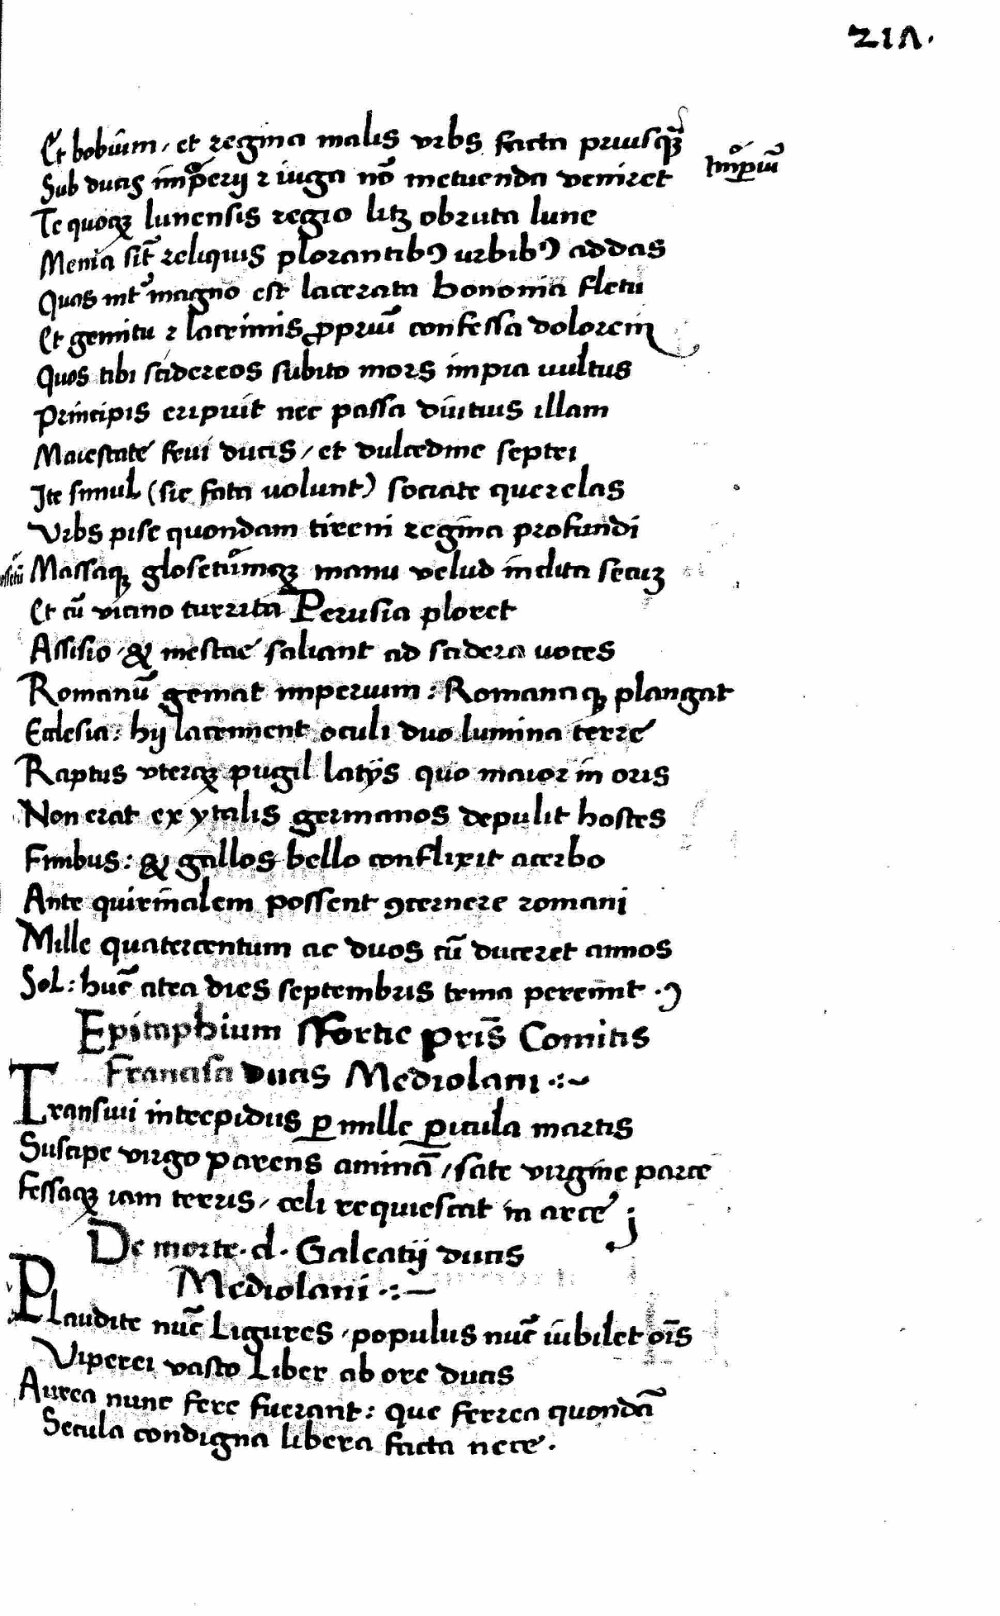 217.
Et bobiũm, et regina malis vrbs facta priusq̃
Sub ducis imperij ⁊ iuga nõ metuenda veniret
Imperiũ
Te quoqꝫ lunensis regio litꝫ obruta lune
Menia sint̃ reliquis plorantibꝰ urbibꝰ addas
Quas int̃ magno est lacerata bononia fletu
Et gemitu ⁊ lacrimis ꝓpriũ confessa dolorem
Quos tibi scidereos subito mors impia uultus
Principis eripuit nec passa diuitius illam
Maiestatē seui ducis, et dulcedine septri
Ite simul (sic fata uolunt) sociate querelas
Vrbs pise quondam tireni regina profundi
Massaqꝫ glosetũmqꝫ manu velud indita secuꝫ
Et cũ vicino turrita Perusia ploret
Assisio, & mestae saliant ad scidera uoces
Romanũ gemat imperium: Romanaqꝫ plangat
Ecclesia: hij lacriment oculi duo lumina terre
Raptus vterqꝫ pugil latijs quo maior in oris
Non erat ex ytalis germanos depulit hostes
Finibus: & gallos bello conflixit acerbo
Ante quirinalem possent ꝯcernere romani
Mille quatercentum ac duos cũ duceret annos
Sol: hũc atra dies septembris terna peremit.
Epitaphium Sfortie pris̃ Comitis
Francisci Ducis Mediolani
Transiui intrepidus ꝑ mille ꝑicula martis
Suscipe virgo parens aminã, sate virgine parce
Fessaqꝫ iam terris, celi requiescat in arce
De morte. d. Galeatij ducis
Mediolani
Plaudite nũc Ligures, populus nũc iubilet oĩs
Viperei vasto Liber ab ore ducis
Aurea nunc fere fuerant: que ferrea quondã
Secula condigna libera facta nece.